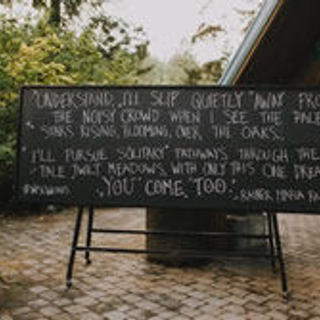 "UNDERSTAND, I'LL SLIP QUIETLY AWAY FRO
THE NOISY CROWD WHEN I SEE THE PALE
STARS RISING, BLOOMING, OVER THE OAKS.
I'LL PURSUE SOLITARY PATHWAYS THROUGH THE
PALE TWILIT MEADOWS, WITH ONLY THIS ONE DREA
YOU COME, TOO."
- RAINER MARIA